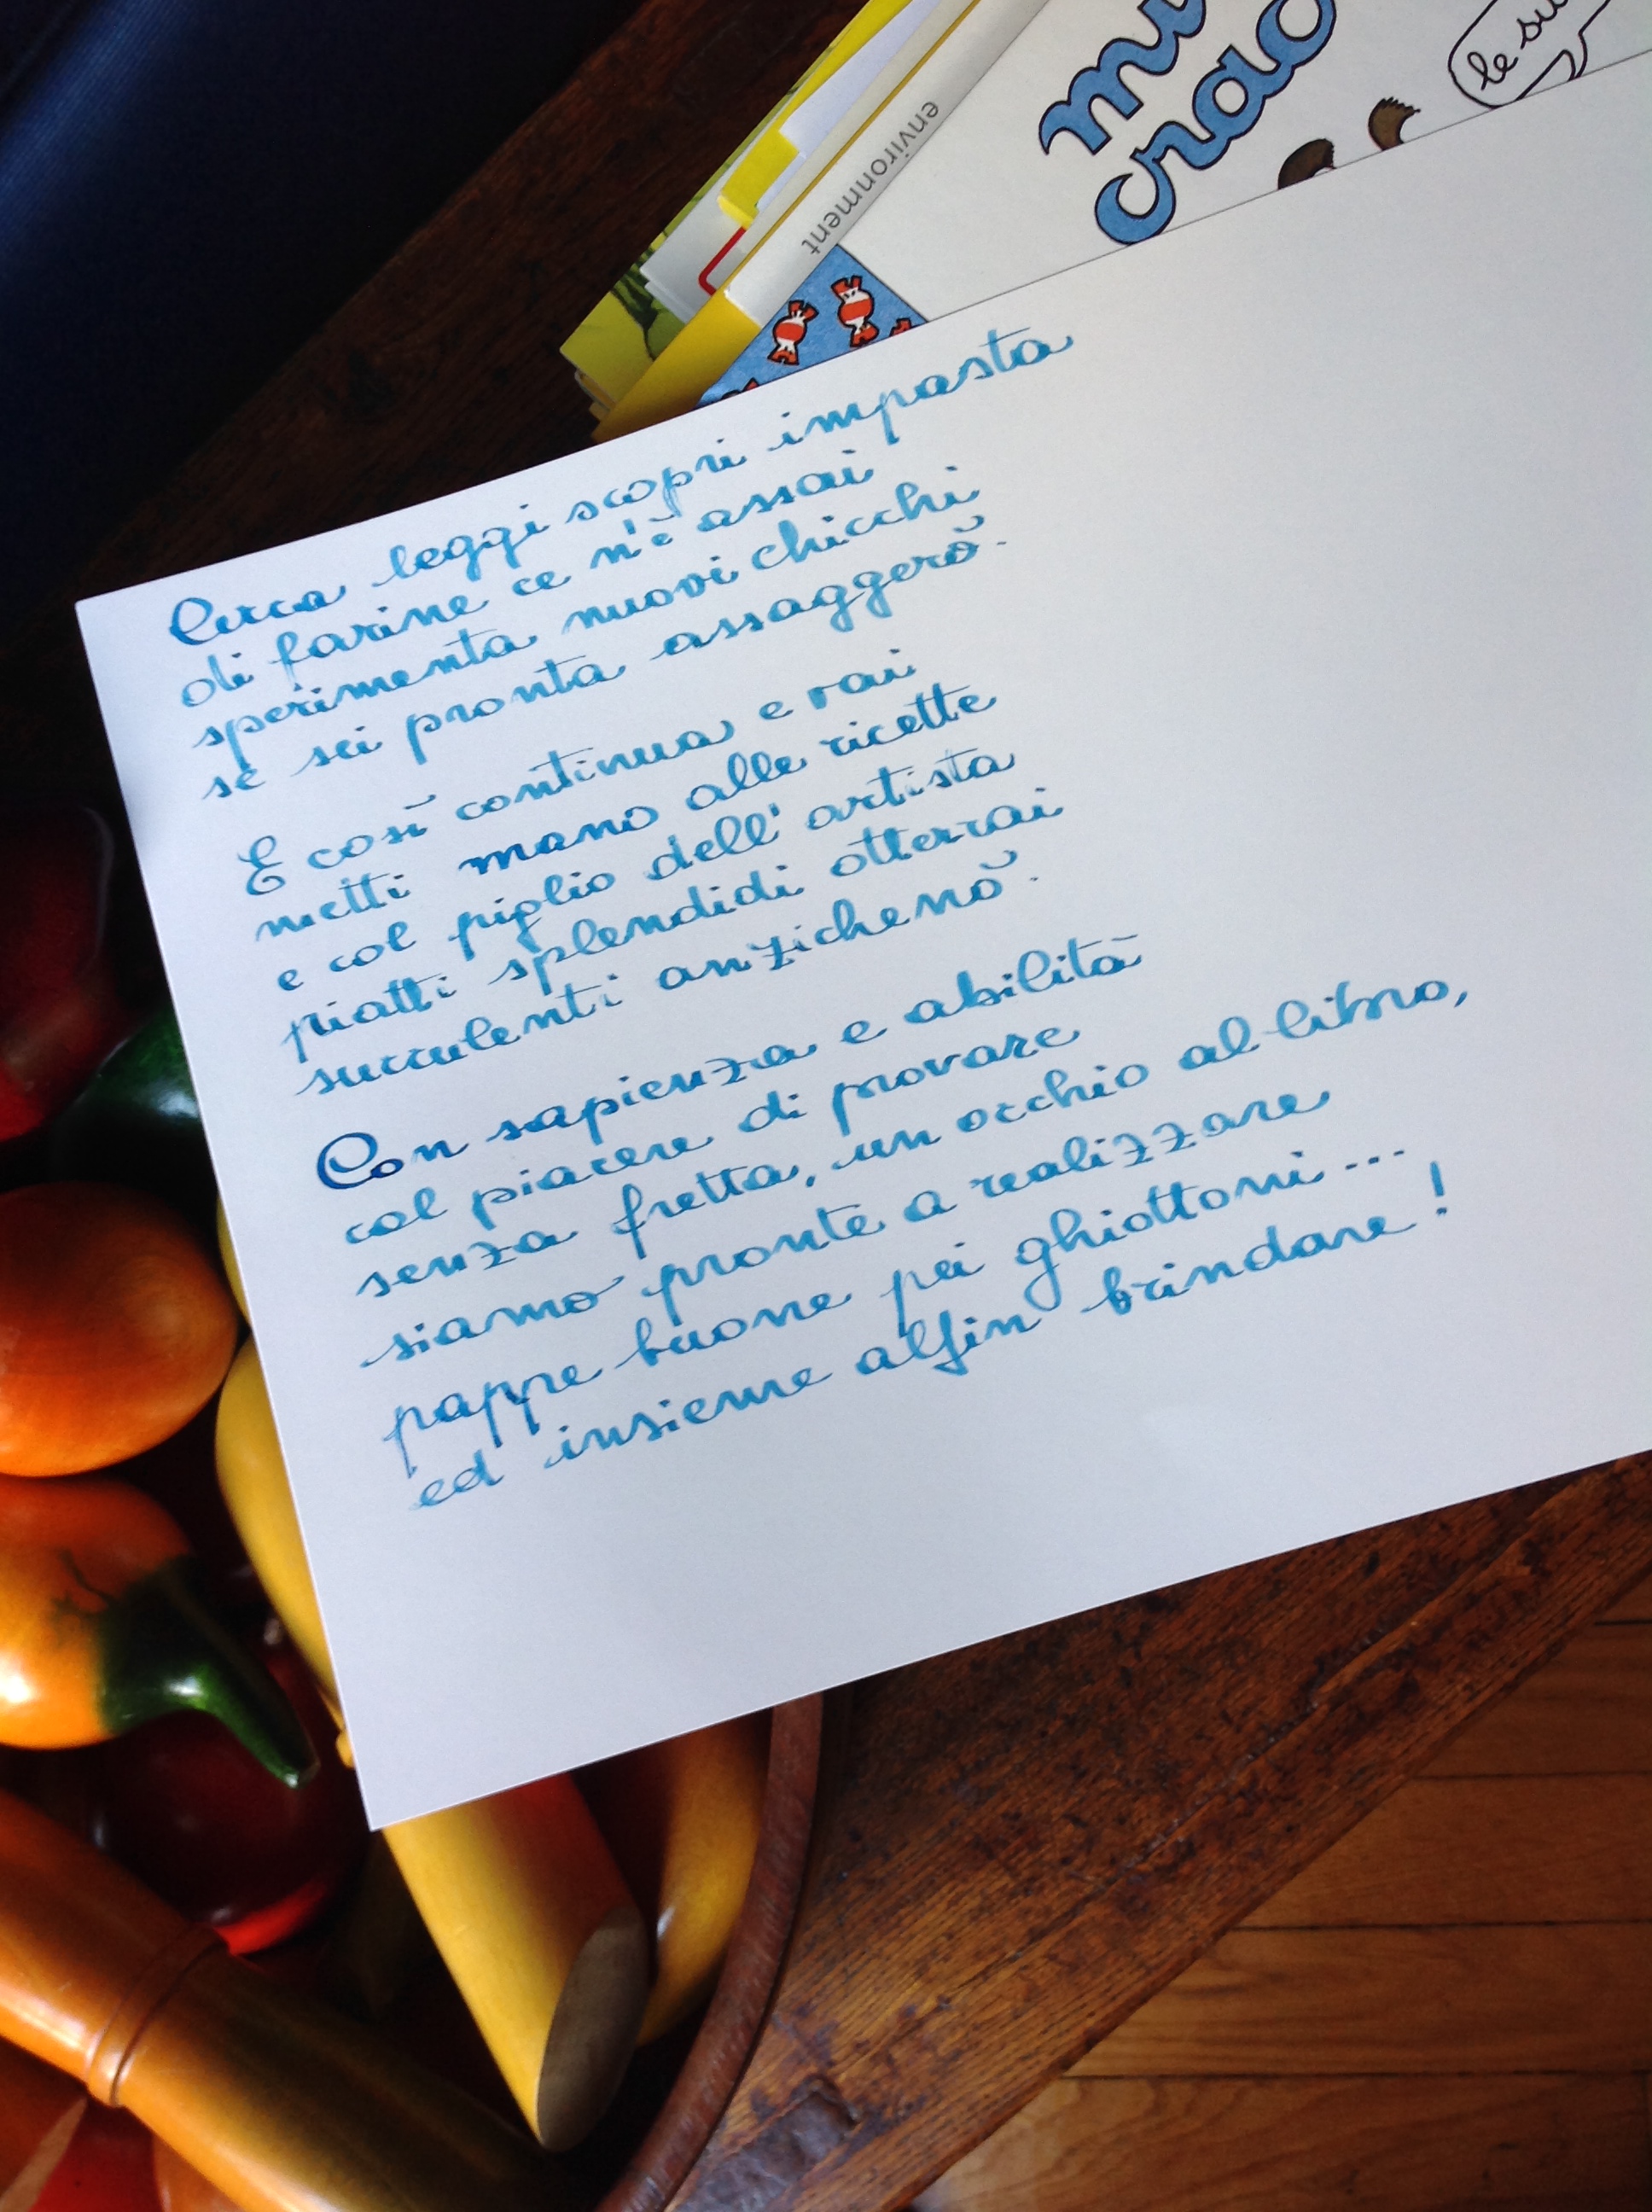 mi
crac
le su
environment
Cerca leggi scopri impasta
di farine ce n'è assai
sperimenta nuovi chicchi
se sei pronta assaggerò.
E così continua e vai
metti mano alle ricette
e col piglio dell'artista
piatti splendidi otterrai
succulenti anzichenò.
Con sapienza e abilità
col piacere di provare
senza fretta, un occhio al libro,
siamo pronte a realizzare
pappe buone pei ghiottoni...
ed insieme alfin brindare!